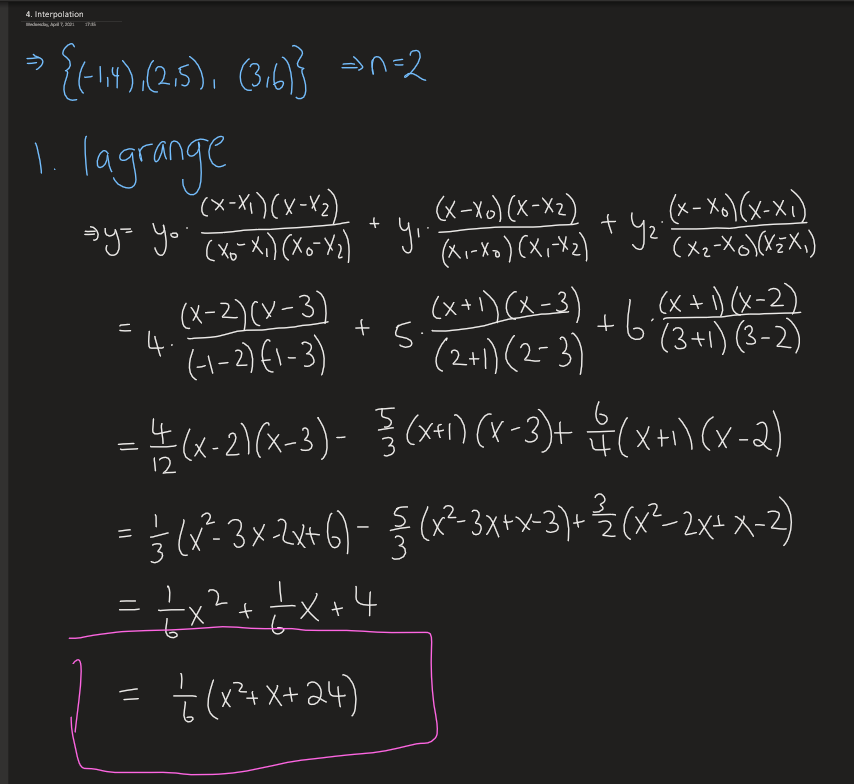 4. Interpolation
Wednesday, April 7, 2021 17:35
⇒ {(-1,4),(2,5), (3,6)} ⇒n=2
1. lagrange
⇒y= y₀·(x-x₁)(x-x₂)/(x₀-x₁)(x₀-x₂) + y₁·(x-x₀)(x-x₂)/(x₁-x₀)(x₁-x₂) + y₂·(x-x₀)(x-x₁)/(x₂-x₀)(x₂-x₁)
= 4·(x-2)(x-3)/(-1-2)(-1-3) + 5·(x+1)(x-3)/(2+1)(2-3) + 6·(x+1)(x-2)/(3+1)(3-2)
= 4/12(x-2)(x-3) - 5/3(x+1)(x-3)+ 6/4(x+1)(x-2)
= 1/3(x²-3x-2x+6) - 5/3(x²-3x+x-3)+ 3/2(x²-2x+x-2)
= 1/6x² + 1/6x + 4
= 1/6(x²+x+24)